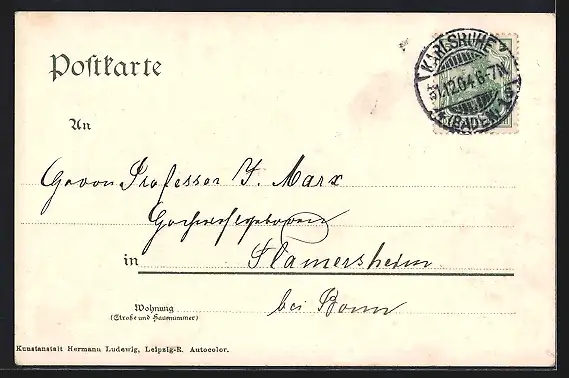 Postkarte
KARLSRUHE
31.12.04.6-7N
(BADEN)
An
Herrn Professor J. Marx
Hochwohlgeboren
in Flamersheim
bei Bonn
Wohnung
(Straße und Hausnummer)
Kunstanstalt Hermann Ludewig, Leipzig-R. Autocolor.